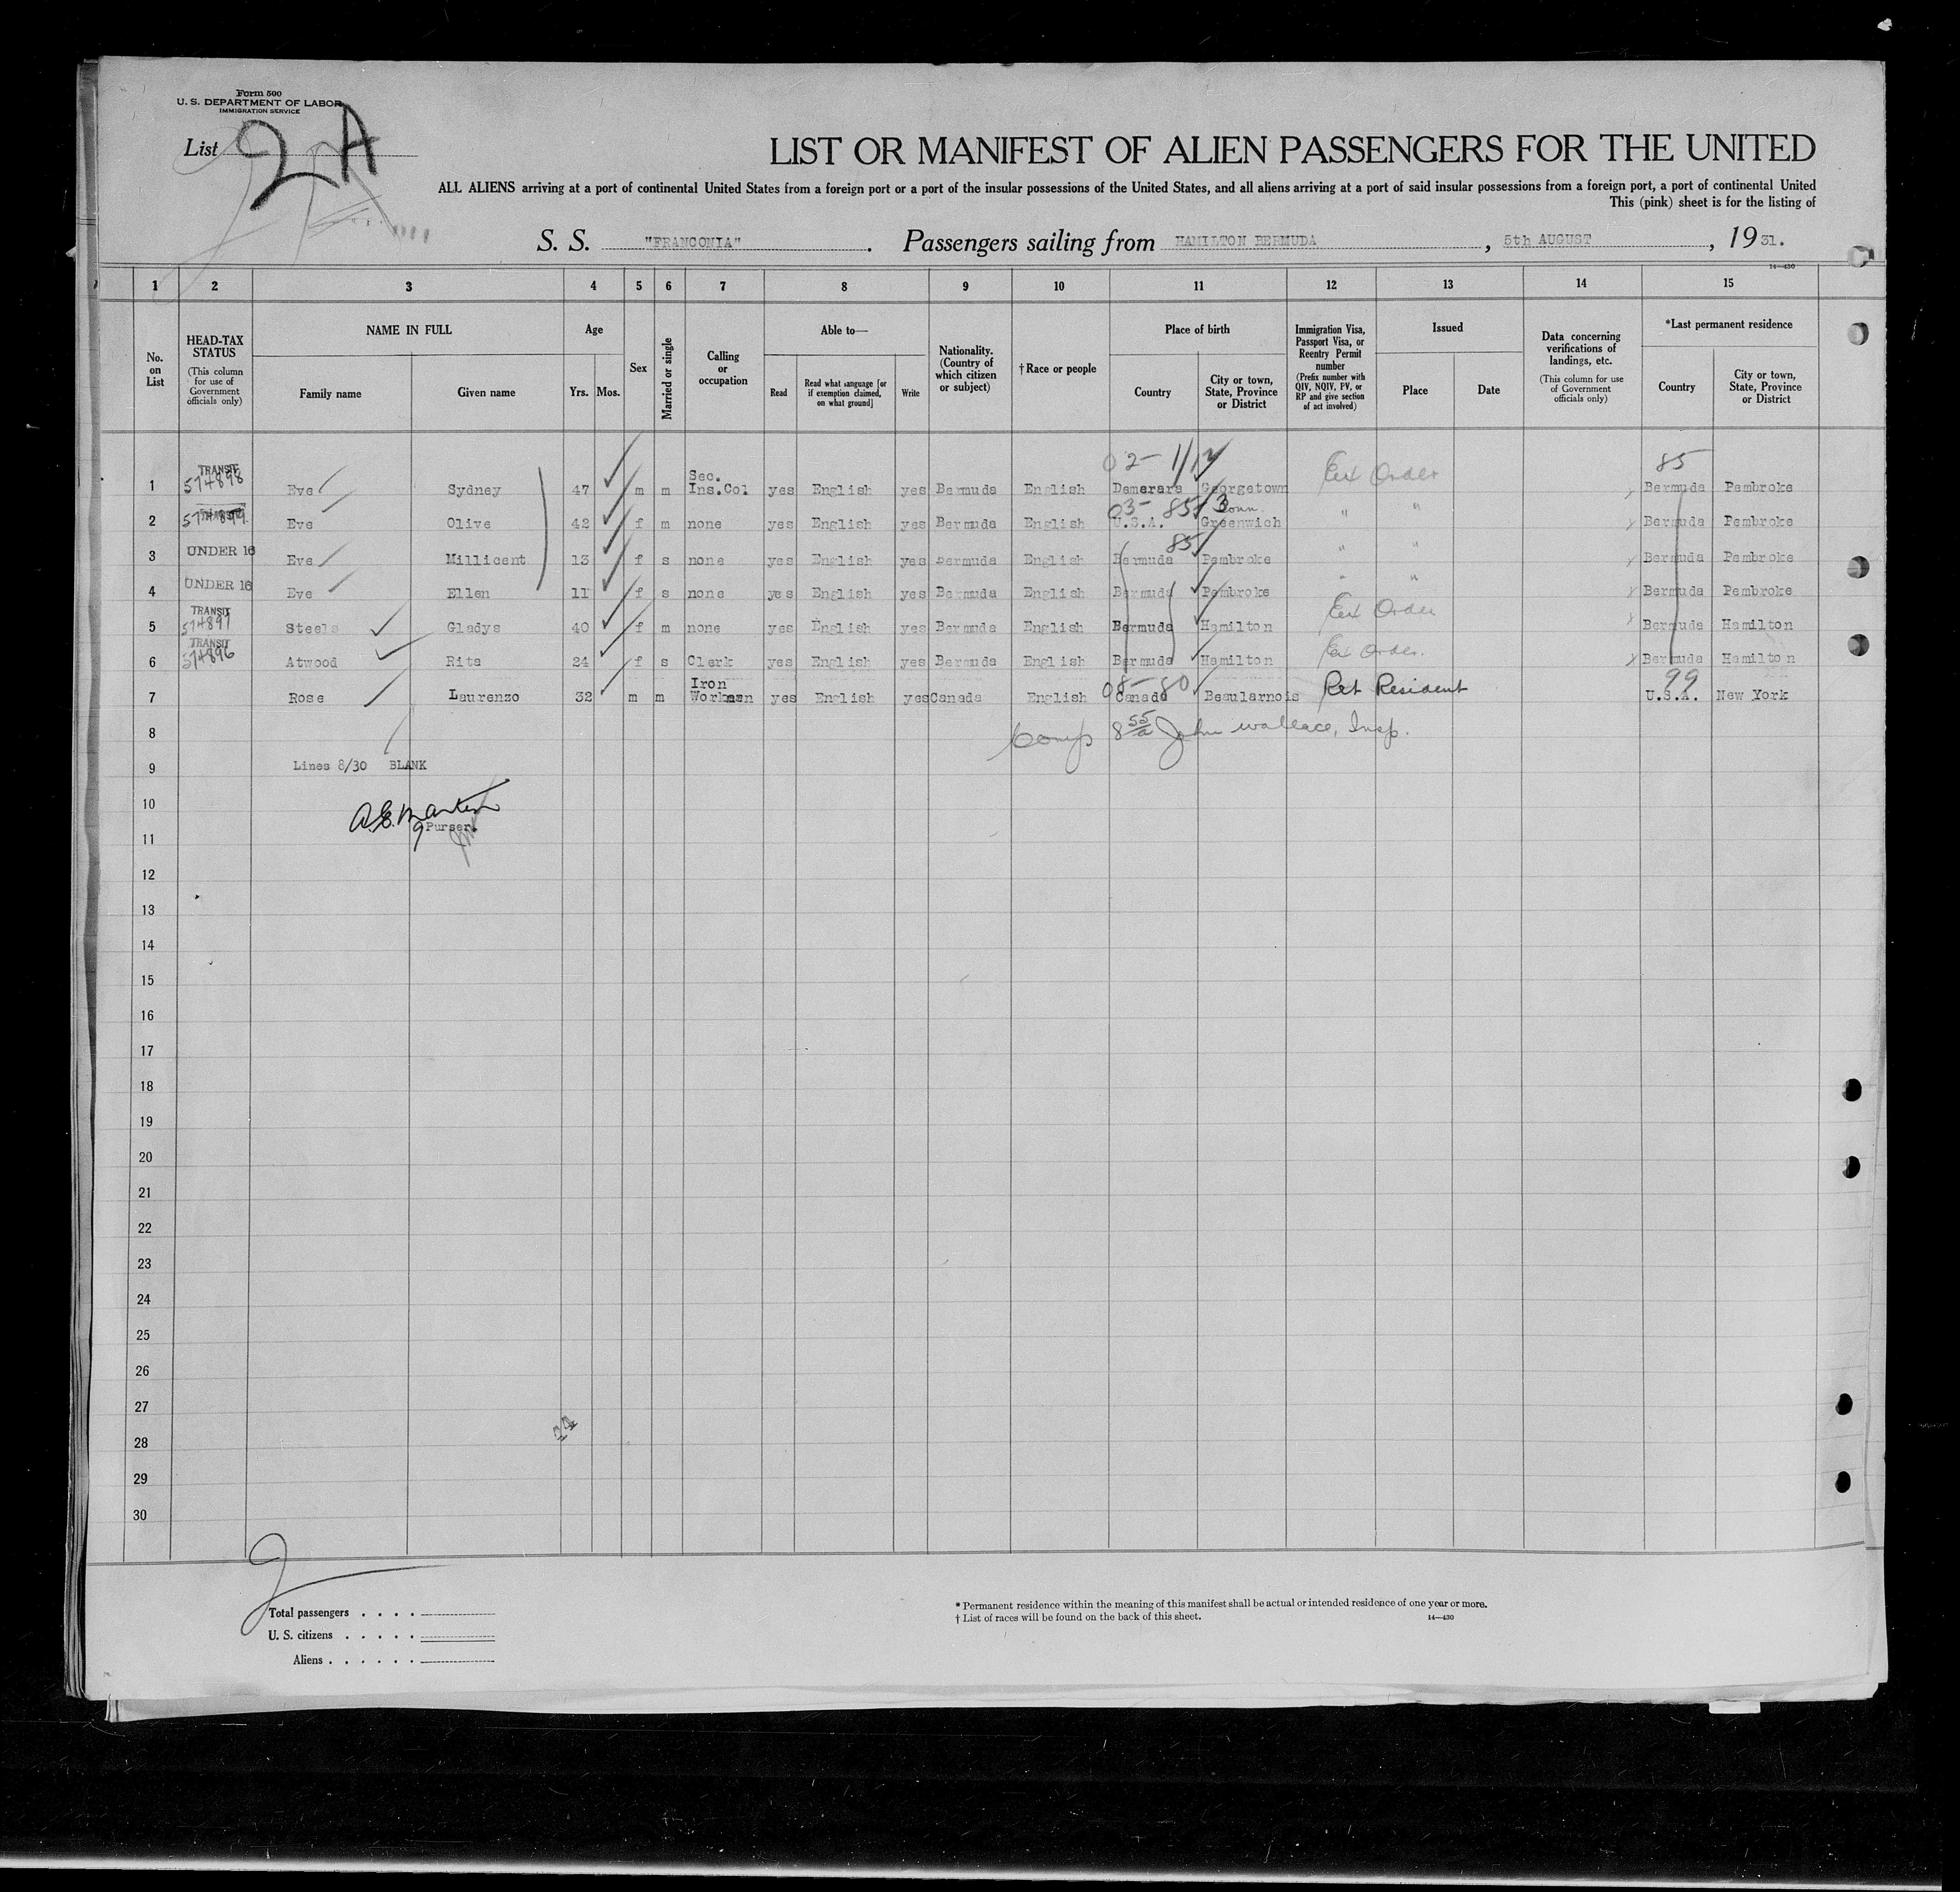 Form 500
U. S. DEPARTMENT OF LABOR
IMMIGRATION SERVICE
List 2 A
LIST OR MANIFEST OF ALIEN PASSENGERS FOR THE UNITED
ALL ALIENS arriving at a port of continental United States from a foreign port or a port of the insular possessions of the United States, and all aliens arriving at a port of said insular possessions from a foreign port, a port of continental United
This (pink) sheet is for the listing of
S. S. "FRANCONIA". Passengers sailing from HAMILTON BERMUDA, 5th AUGUST, 1931.
14—430
1 2 3 4 5 6 7 8 9 10 11 12 13 14 15
No. on List
HEAD-TAX STATUS (This column for use of Government officials only)
NAME IN FULL
Family name Given name
Age
Yrs. Mos.
Sex
Married or single
Calling or occupation
Able to—
Read Read what language [or if exemption claimed, on what ground] Write
Nationality. (Country of which citizen or subject)
† Race or people
Place of birth
Country City or town, State, Province or District
Immigration Visa, Passport Visa, or Reentry Permit number (Prefix number with QIV, NQIV, PV, or RP and give section of act involved)
Issued
Place Date
Data concerning verifications of landings, etc. (This column for use of Government officials only)
*Last permanent residence
Country City or town, State, Province or District
02- 1/12 85
1 TRANSIT 574898 Eve Sydney 47 m m Sec. Ins.Col yes English yes Bermuda English Demerara Georgetown Ex Order Bermuda Pembroke
03- 85 3
2 TRANSIT 574899 Eve Olive 42 f m none yes English yes Bermuda English U.S.A. Conn. Greenwich " " Bermuda Pembroke
85
3 UNDER 16 Eve Millicent 13 f s none yes English yes Bermuda English Bermuda Pembroke " " Bermuda Pembroke
4 UNDER 16 Eve Ellen 11 f s none yes English yes Bermuda English Bermuda Pembroke " " Bermuda Pembroke
5 TRANSIT 574897 Steele Gladys 40 f m none yes English yes Bermuda English Bermuda Hamilton Ex Order Bermuda Hamilton
6 TRANSIT 574896 Atwood Rita 24 f s Clerk yes English yes Bermuda English Bermuda Hamilton Ex Order. Bermuda Hamilton
08-80 99
7 Rose Laurenzo 32 m m Iron Workman yes English yes Canada English Canada Beaularnois Ret Resident U.S.A. New York
8 Comp 8 55/a John Wallace, Insp.
9 Lines 8/30 BLANK
10 A.E. Martin
Purser.
11
12
13
14
15
16
17
18
19
20
21
22
23
24
25
26
27
28
29
30
Total passengers . . . .
U. S. citizens . . . . .
Aliens . . . . . .
* Permanent residence within the meaning of this manifest shall be actual or intended residence of one year or more.
† List of races will be found on the back of this sheet. 14—430